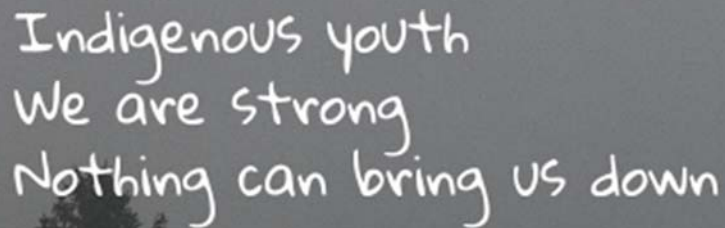 Indigenous youth
We are strong
Nothing can bring us down